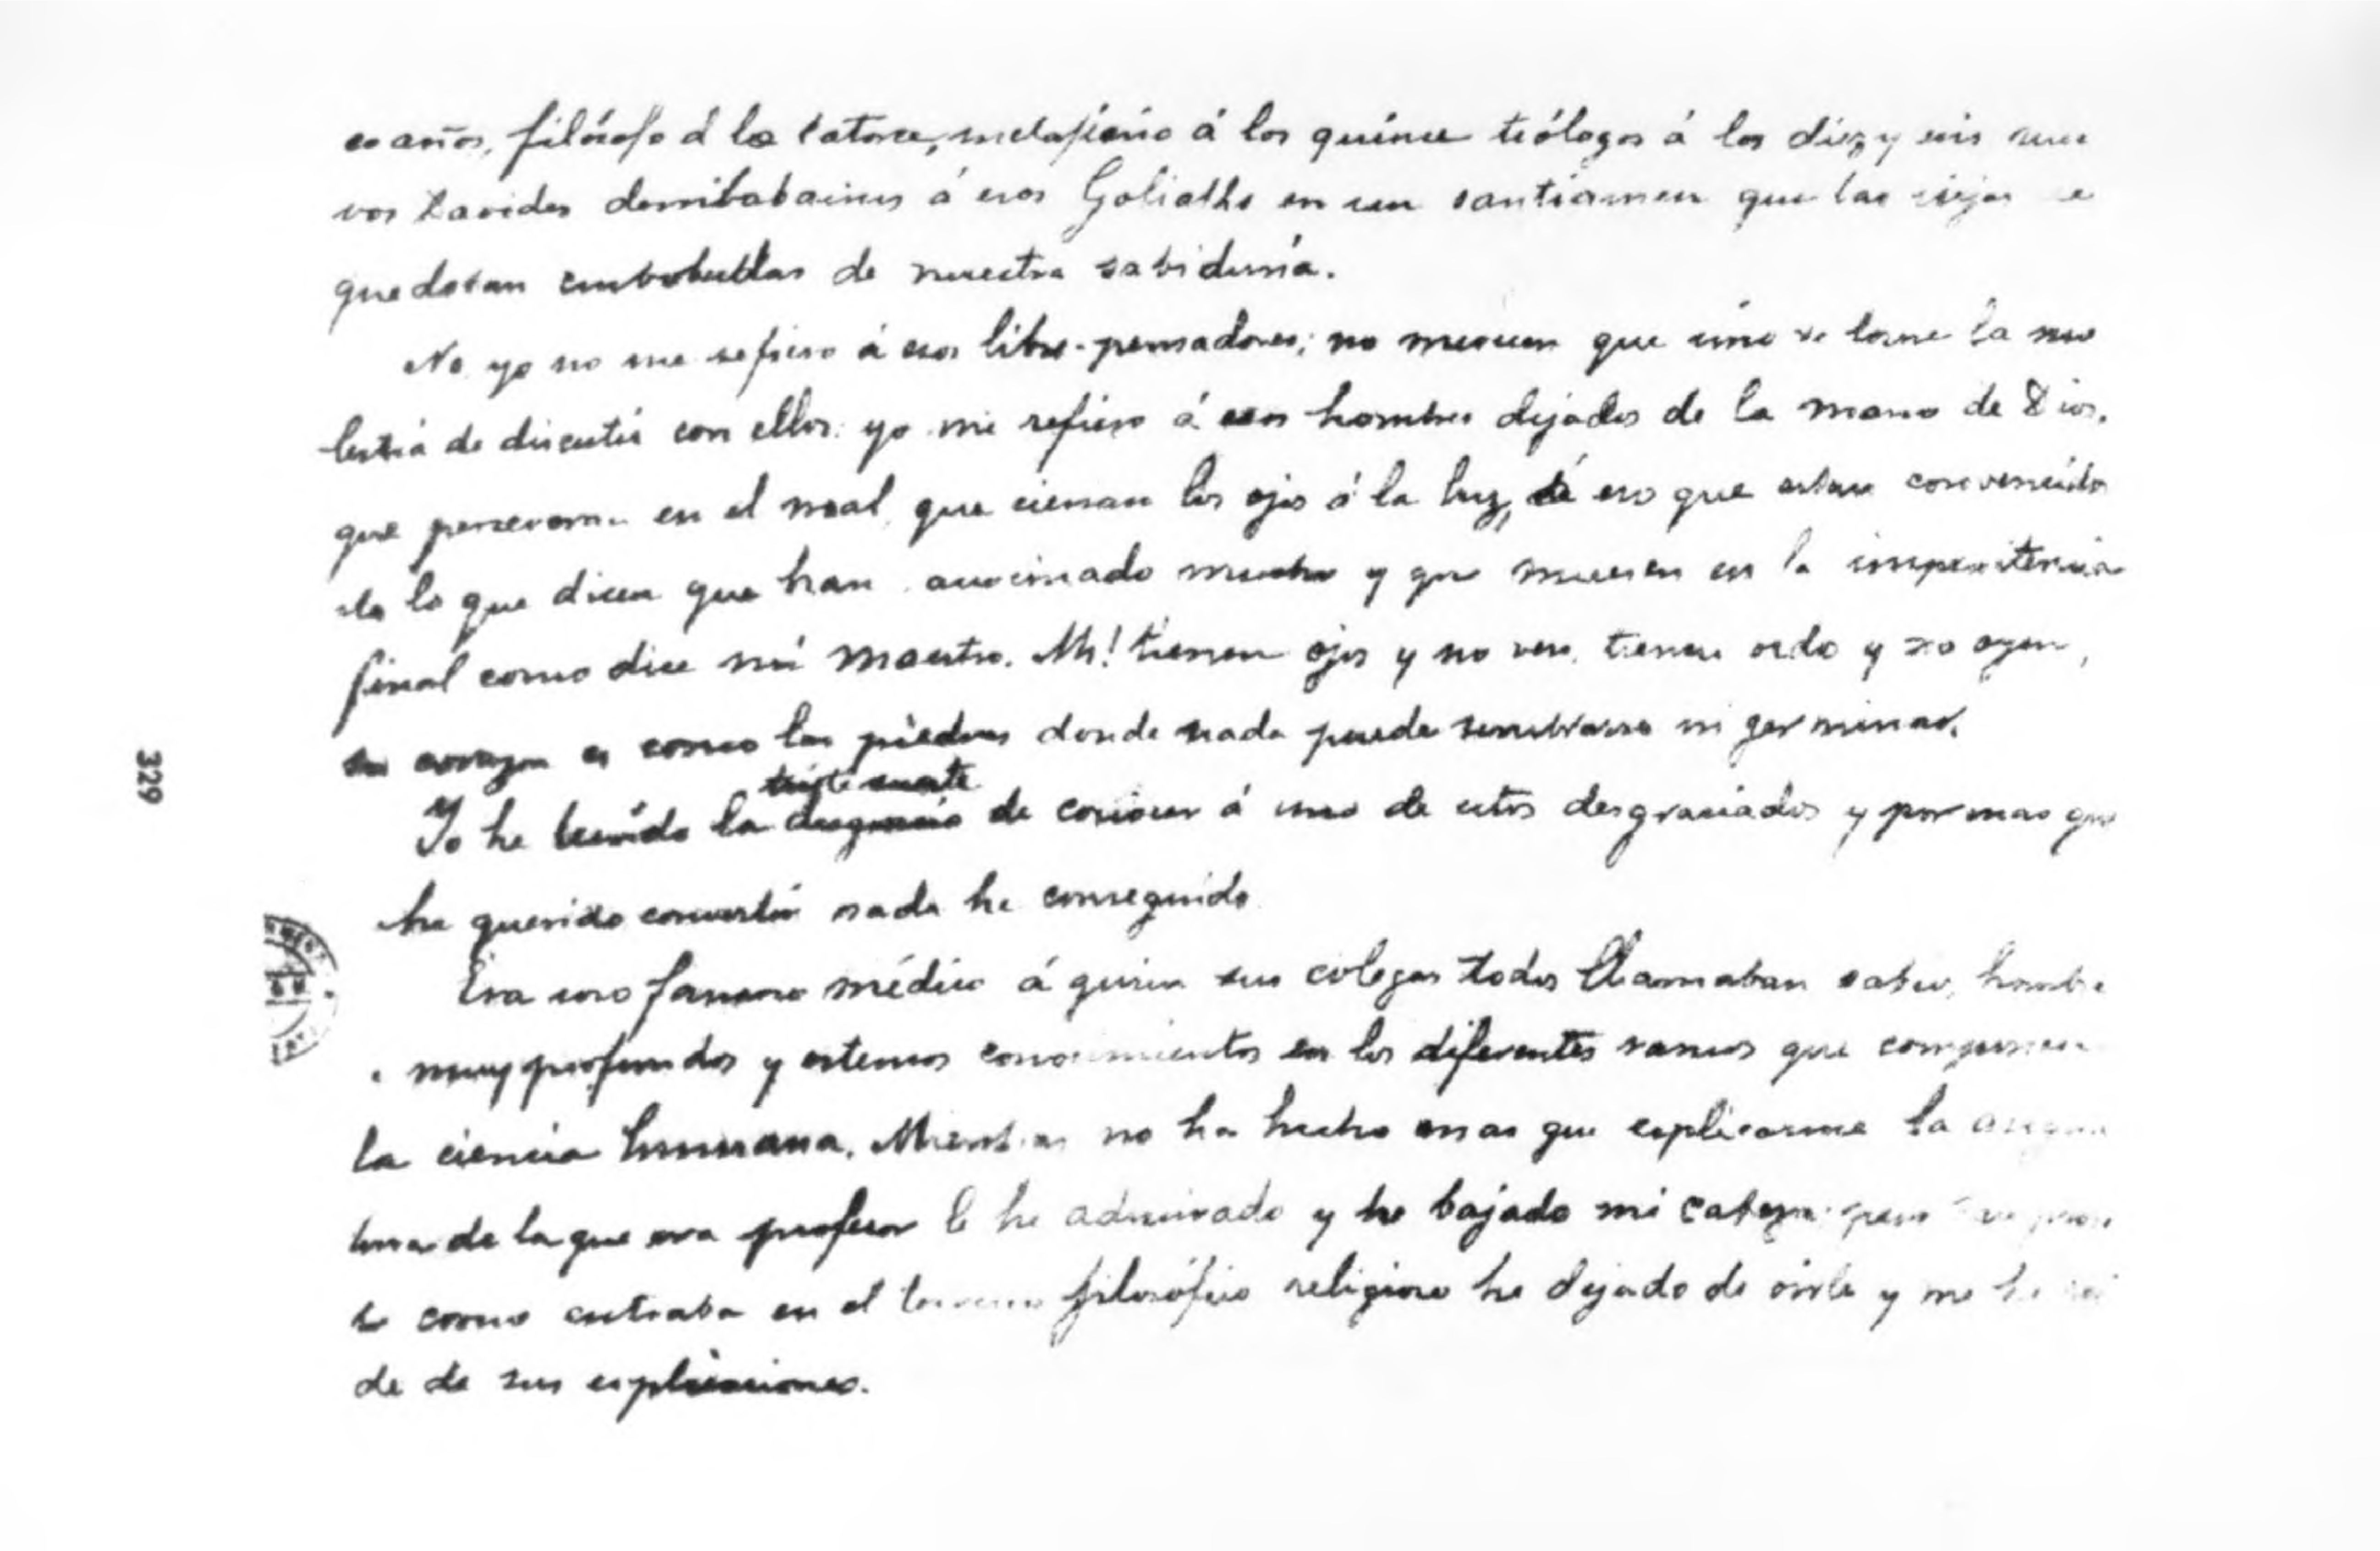 co años, filósofo á los catorce, metafísico á los quince teólogos á los diez y seis nue
vos Davides derribabamos á esos Goliaths en un santiamen que las viejas se
quedaban embobadas de nuestra sabiduría.
No yo no me refiero á esos libre-pensadores; no merecen que uno se tome la mo
lestia de discutir con ellos: yo me refiero á esos hombres dejados de la mano de Dios,
que perseveran en el mal, que cierran los ojos á la luz, á eso que estan convencidos
de lo que dicen que han mucho y que mueren en la impenitencia
final como dice mi maestro. Ah! tienen ojos y no ven, tienen oido y no oyen,
su corazon es como las piedras donde nada puede sembrarse ni germinar.
triste suerte
Yo he tenido la desgracia de conocer á uno de estos desgraciados y por mas que
he querido convertir nada he conseguido
Era uno famoso médico á quien sus colegas todos llamaban sabio, hombre
muy profundos y estensos conocimientos en los diferentes ramos que componen
la ciencia humana. Mientras no ha hecho mas que esplicarme la asigna
tura de la que era profesor le he admirado y he bajado mi cabeza: pero
como entraba en el terreno filosófico religioso he dejado de oirle y me he rei
do de sus esplicaciones.
329